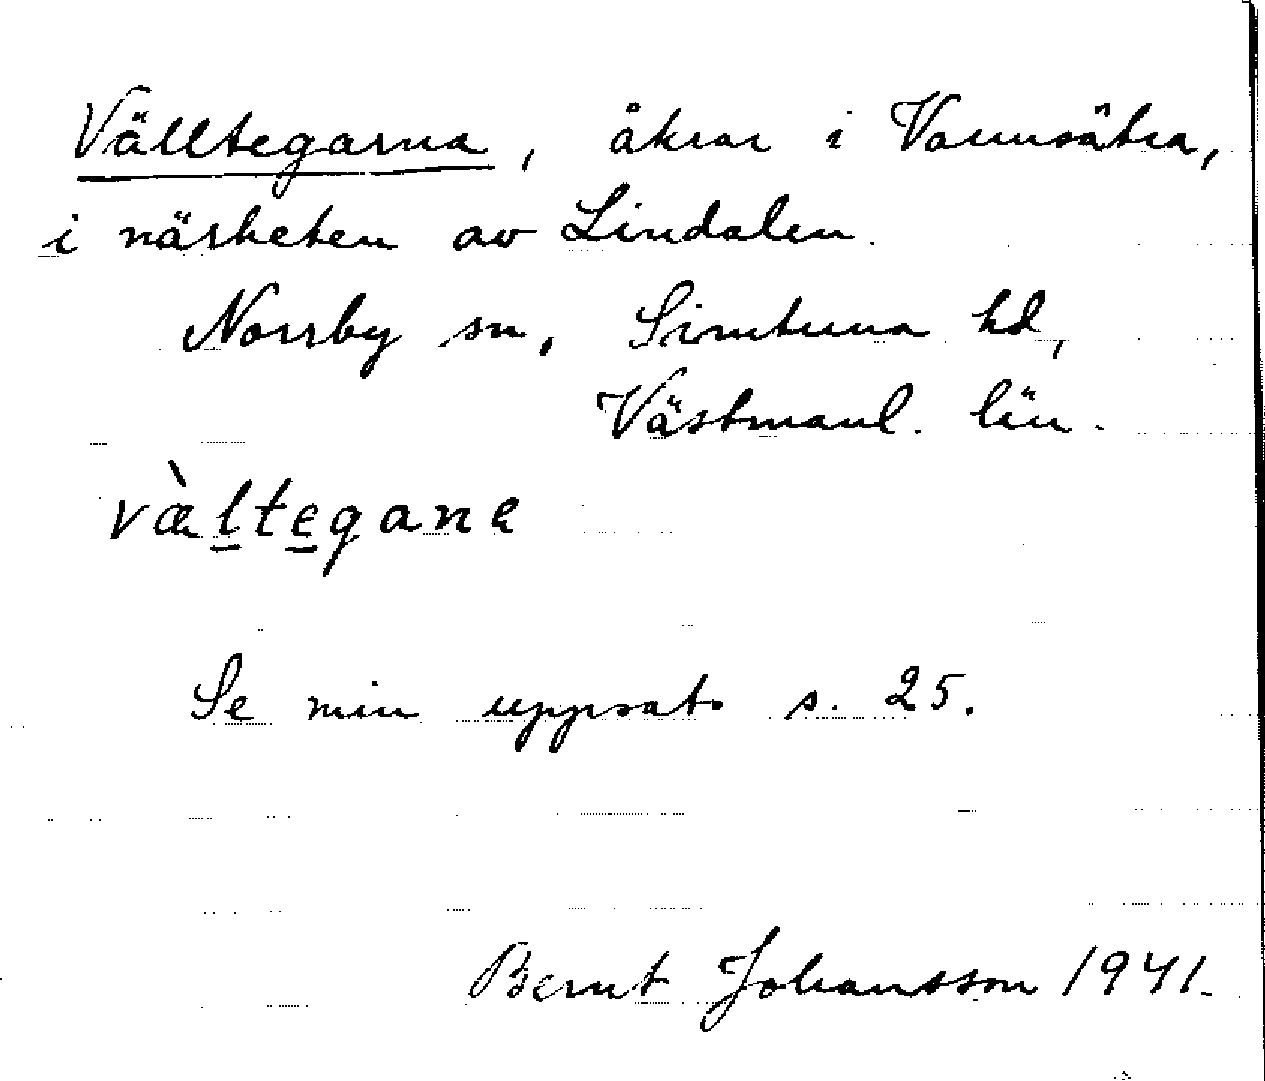 Välltegarna, åkrar i Vannsätra,
i närheten av Lindalen.
Norrby sn, Simtuna hd,
Västmanl. län.
væ̀ltegane
Se min uppsats s. 25.
Bernt Johansson 1941.